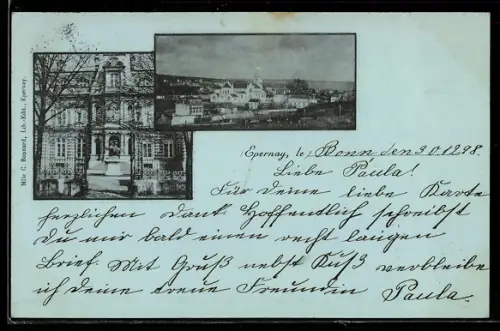 Mlle C. Bonnard, Lib.-Édit., Epernay.
Epernay, le, Bonn den 30.12.98.
Liebe Paula!
Für Deine liebe Karte
herzlichen Dank. Hoffentlich schreibst
Du mir bald einen recht langen
Brief. Mit Gruß nebst Kuß verbleibe
ich Deine treue Freundin Paula.